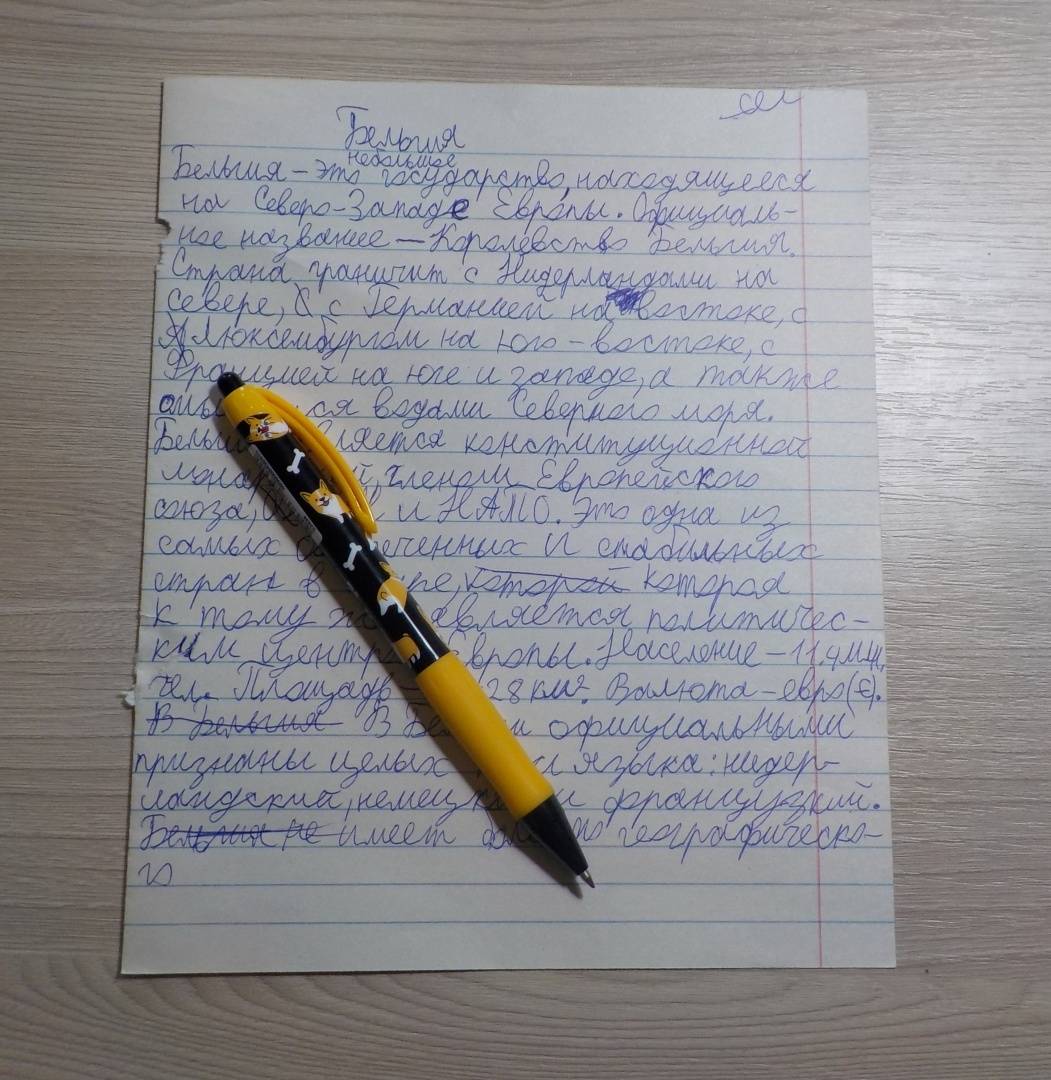 Бельгия
небольшое
Бельгия – это государство, находящееся
на Северо-Западе Европы. Официаль-
ное название – Королевство Бельгия.
Страна граничит с Нидерландами на
севере, с Германией на востоке, с
Люксембургом на юго-востоке, с
Францией на юге и западе, а также
водами Северного моря.
конституционной
членом Европейского
союза, и НАТО. Это одна из
самых и стабильных
стран в которой которая
к тому является политичес-
ким Европы. Население – 11,4 млн.
чел. Площадь 28 км². Валюта – евро (€).
В Бельгия В официальными
признаны целых языка: нидер-
ландский, немецкий и французский.
Бельгия не имеет географическо-
го